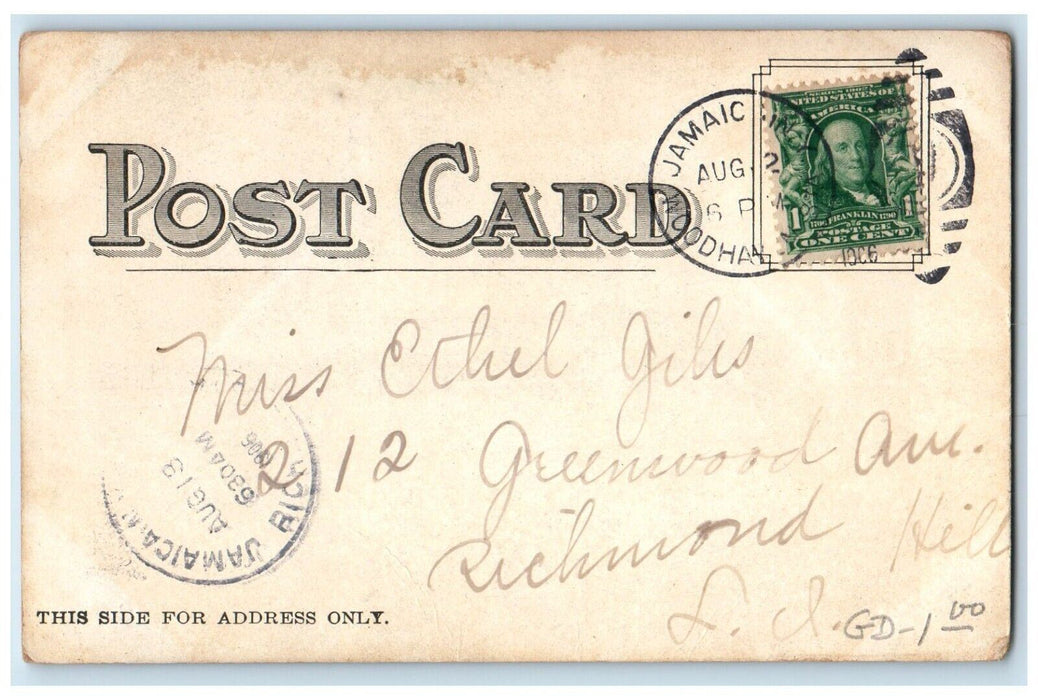 POST CARD
JAMAIC
AUG 2
6 P M
WOODHAV
1906
SERIES 1902
UNITED STATES OF
AMERICA
1706 FRANKLIN 1790
1 POSTAGE 1
ONE CENT
Miss Ethel Giles
212 Greenwood Ave.
Richmond Hill
L. I.
JAMAICA, N
AUG 13
630 AM
1906
RICH
THIS SIDE FOR ADDRESS ONLY.
GD-1 00